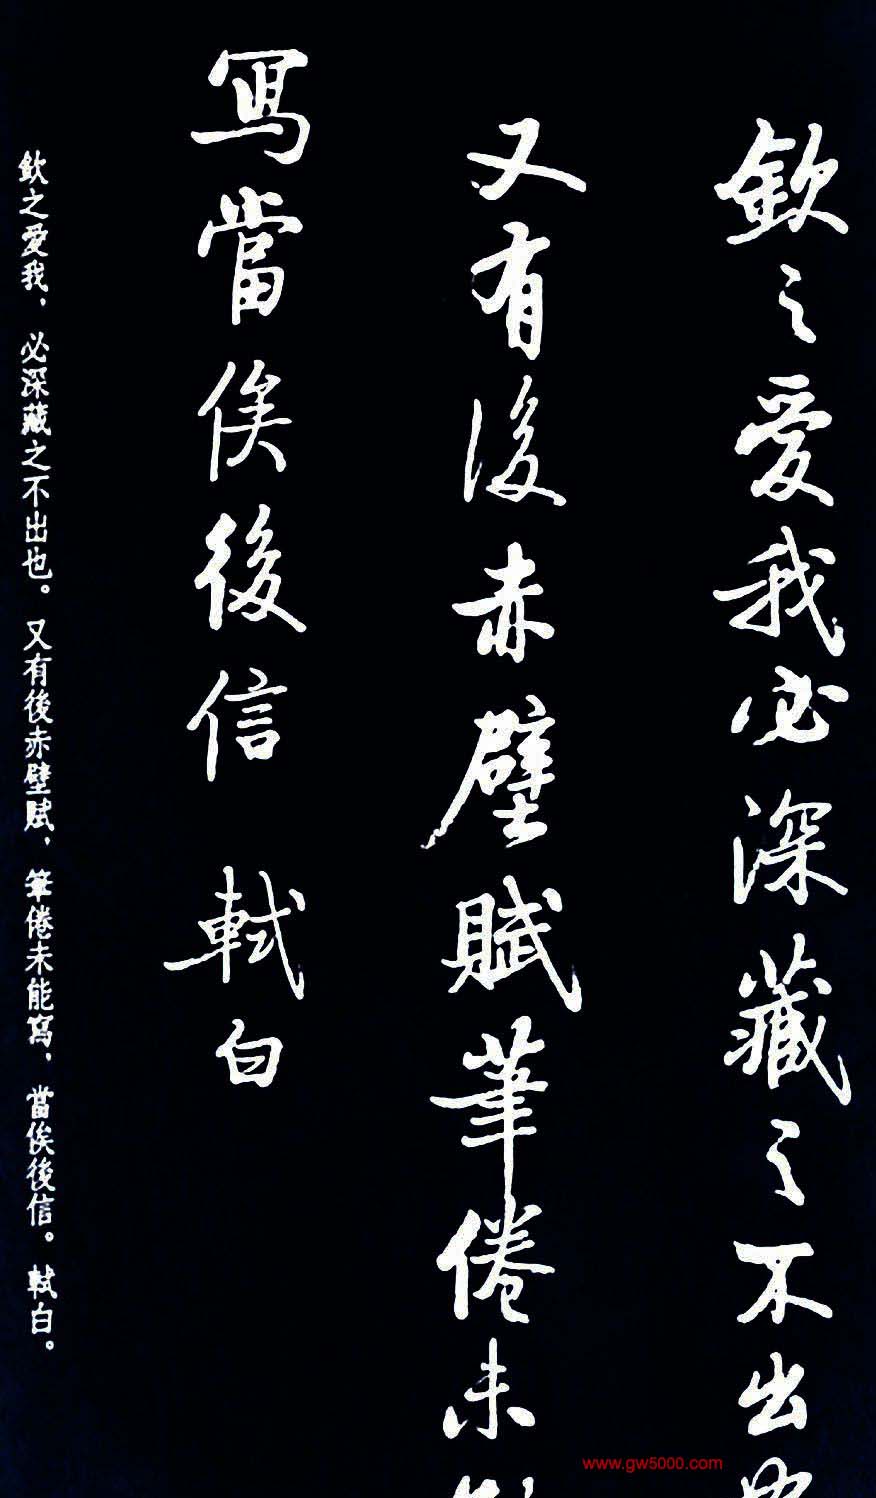 欽之愛我必深藏之不出也
又有後赤壁賦筆倦未能
寫當俟後信 軾白
欽之愛我，必深藏之不出也。又有後赤壁賦，筆倦未能寫，當俟後信。軾白。
www.gw5000.com